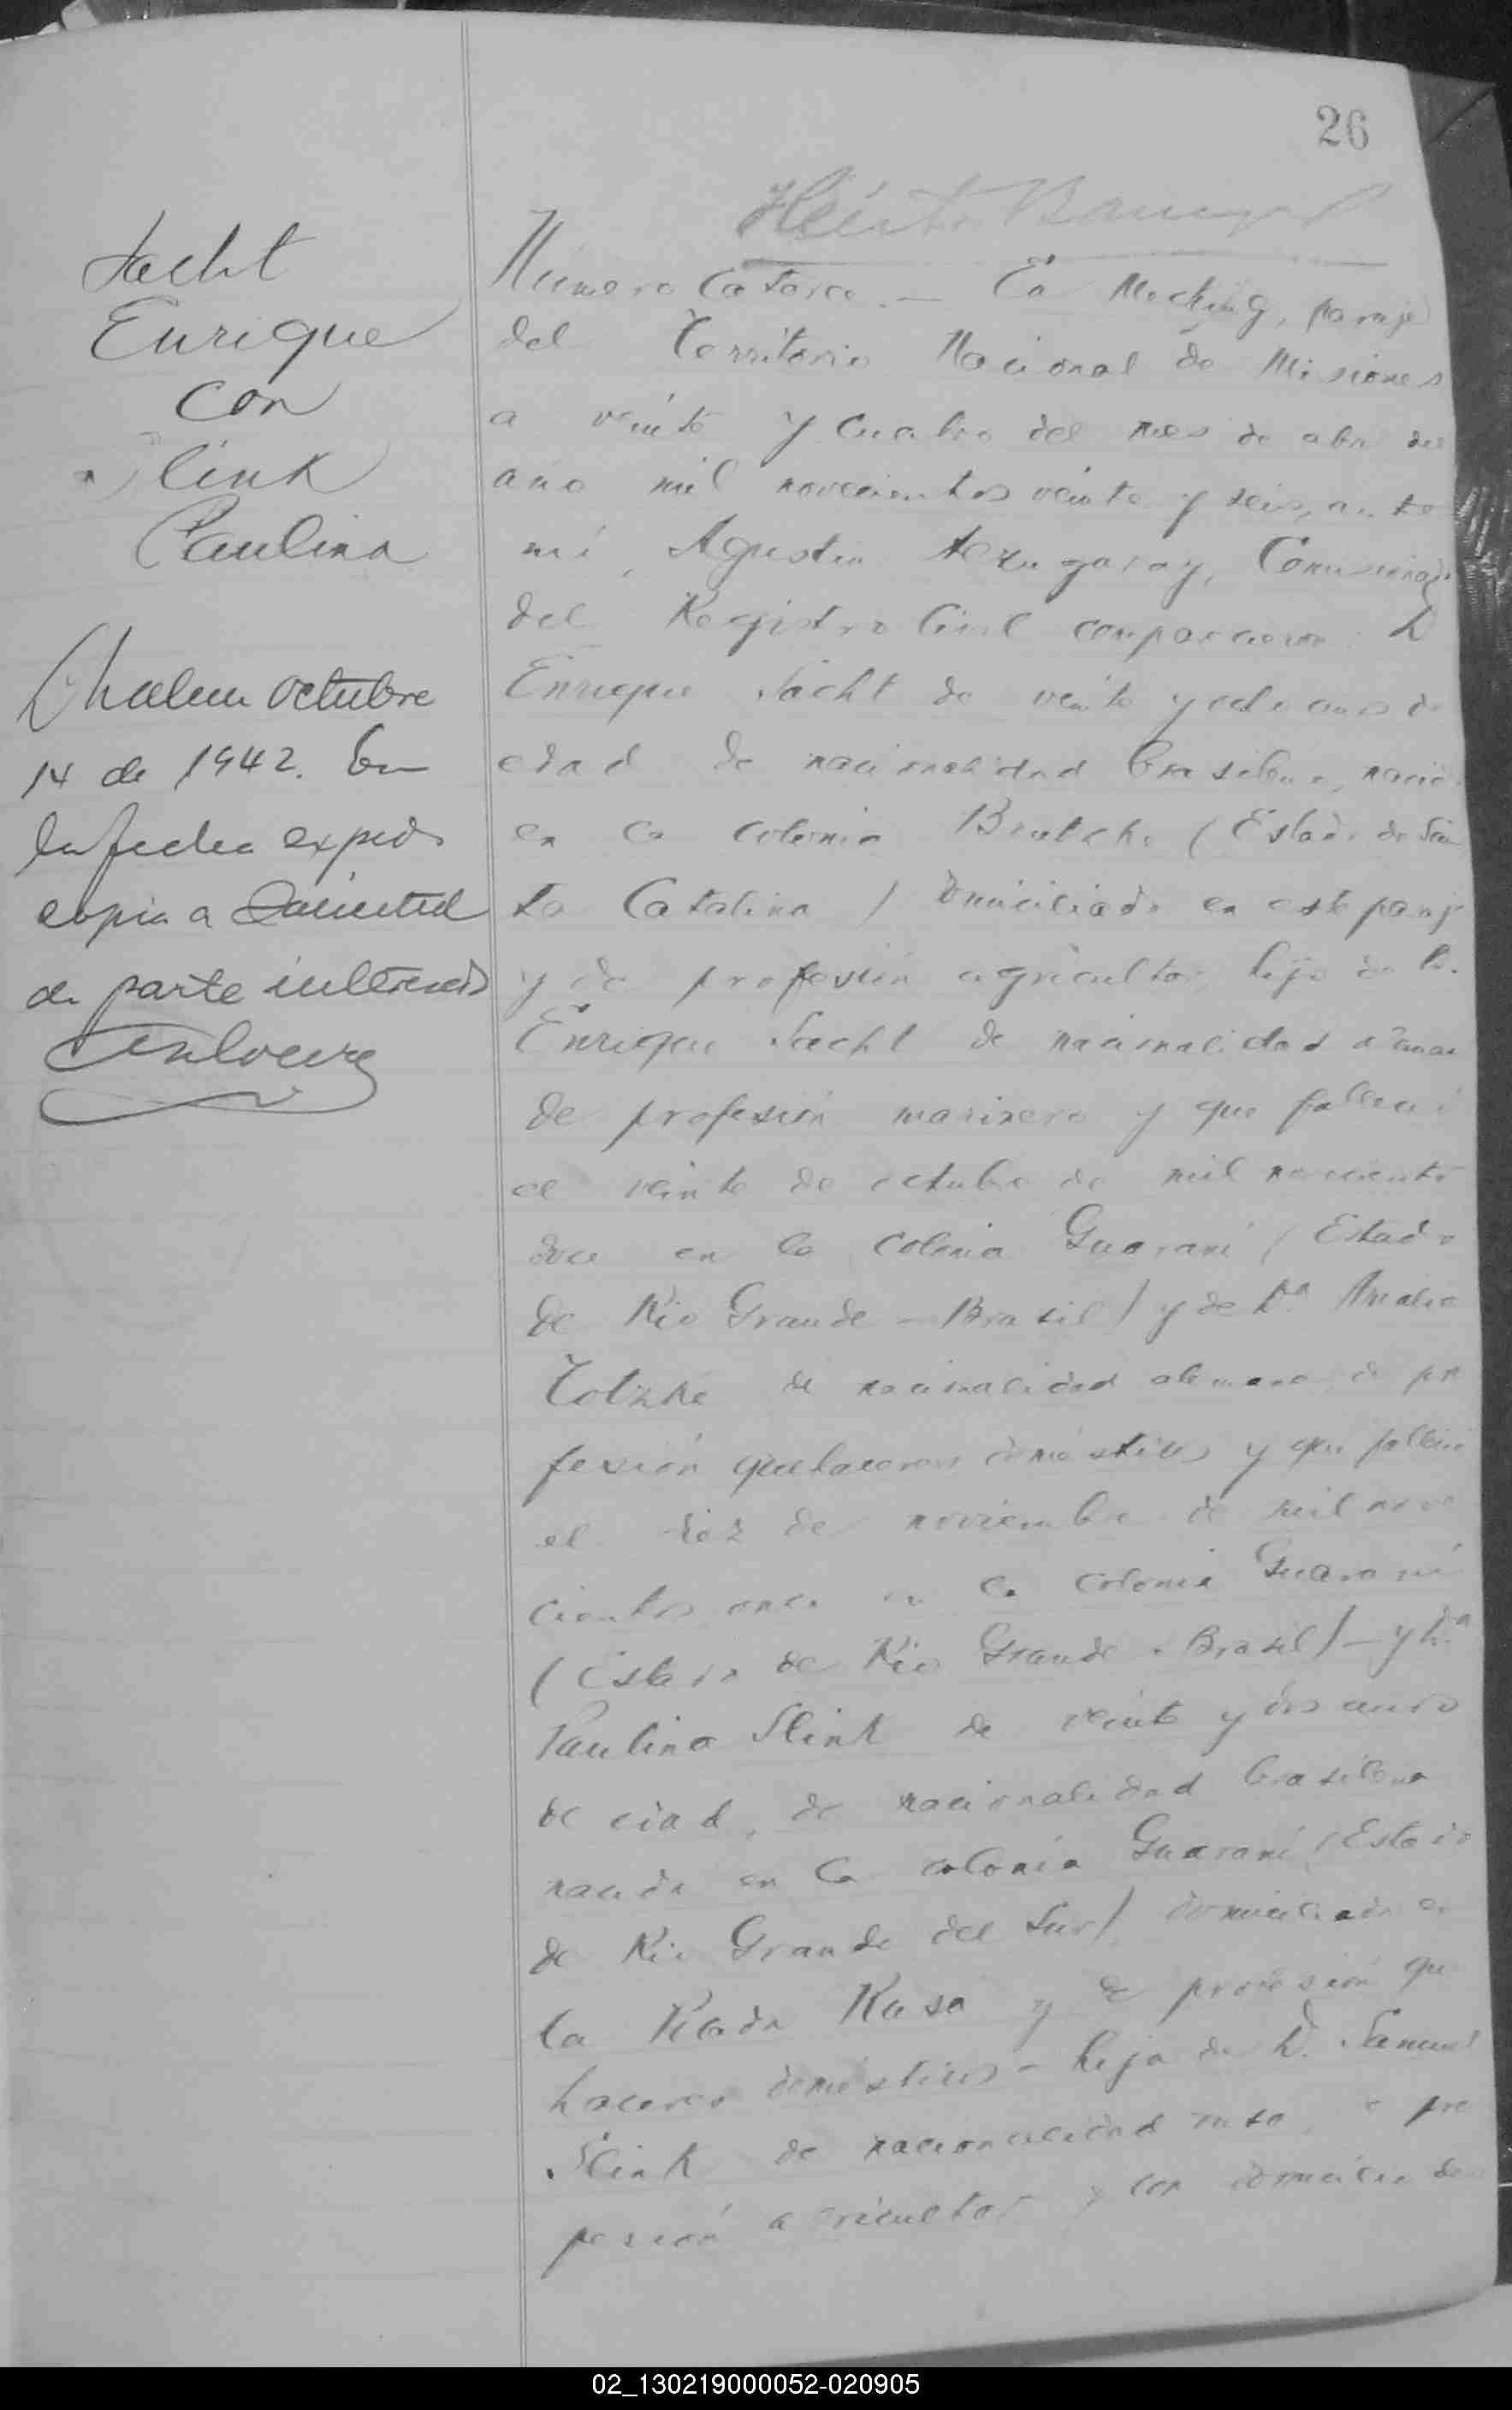 26
Sacht
Enrique
con
Slink
Paulina
octubre
14 de 1942. En
la fecha expido
copia a solicitud
de parte interesada
Número Catorce. — En Mecking, paraje
del Territorio Nacional de Misiones
a veinte y cuatro del mes de abril del
año mil novecientos veinte y seis, ante
mi, Agustin Aezugaray, Comisionado
del Registro Civil comparecieron: D
Enrique Sacht de veinte y ocho anos de
edad de nacionalidad brasilena, nacido
en la colonia (Estado de San
ta Catalina) domiciliado en este paraje
y de profesión agricultor, hijo de D.
Enrique Sacht de nacionalidad alemana
de profesión marinero y que falleció
el veinte de octubre de mil novecientos
doce en la colonia Guarani (Estado
de Rio Grande - Brasil) y de Da. Amalia
Totzke de nacionalidad alemana de pro
fesión quehaceres domésticos y que falleció
el diez de noviembre de mil nove
cientos once en la colonia Guarani
(Estado de Rio Grande - Brasil) — y Da.
Paulina Slink de veinte y dos anos
de edad, de nacionalidad brasilena
nacida en la colonia Guarani (Estado
de Rio Grande del Sur) domiciliada en
la Rusa y de profesión que
haceres domésticos - hija de D. Samuel
Slink de nacionalidad rusa, de pro
fesión agricultor y con domicilio de
02_130219000052-020905